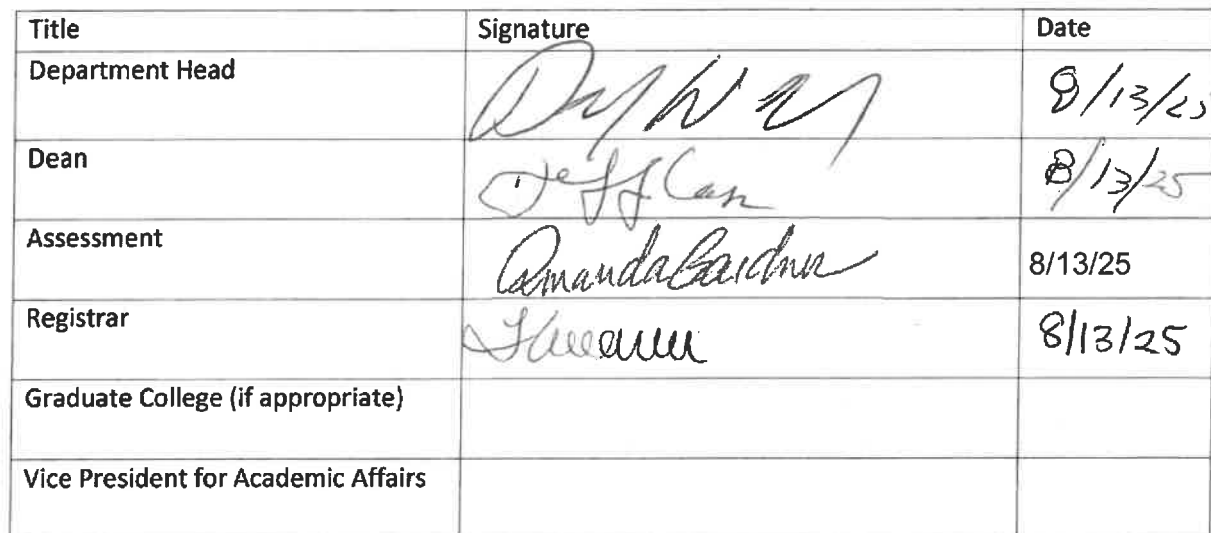 Title Signature Date
Department Head 8/13/25
Dean Jeff Cass 8/13/25
Assessment Amanda Gardner 8/13/25
Registrar 8/13/25
Graduate College (if appropriate)
Vice President for Academic Affairs